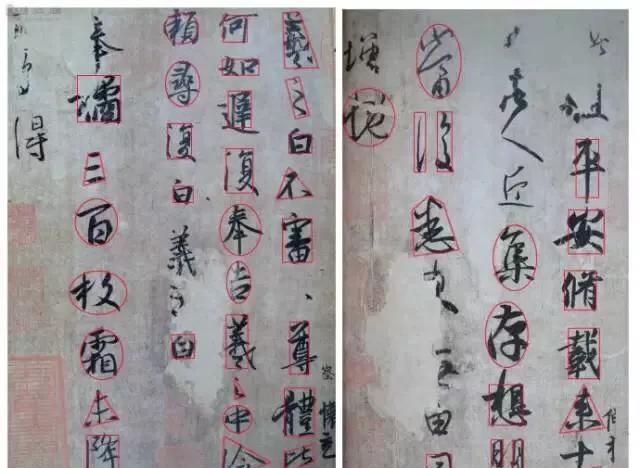 羲之白不審尊體比
何如遲復奉告羲之中冷
賴尋復白羲之白
奉橘三百枚霜未降
得
此粗平安脩載來十
餘人近集存想明
當復悉來無由同
增慨